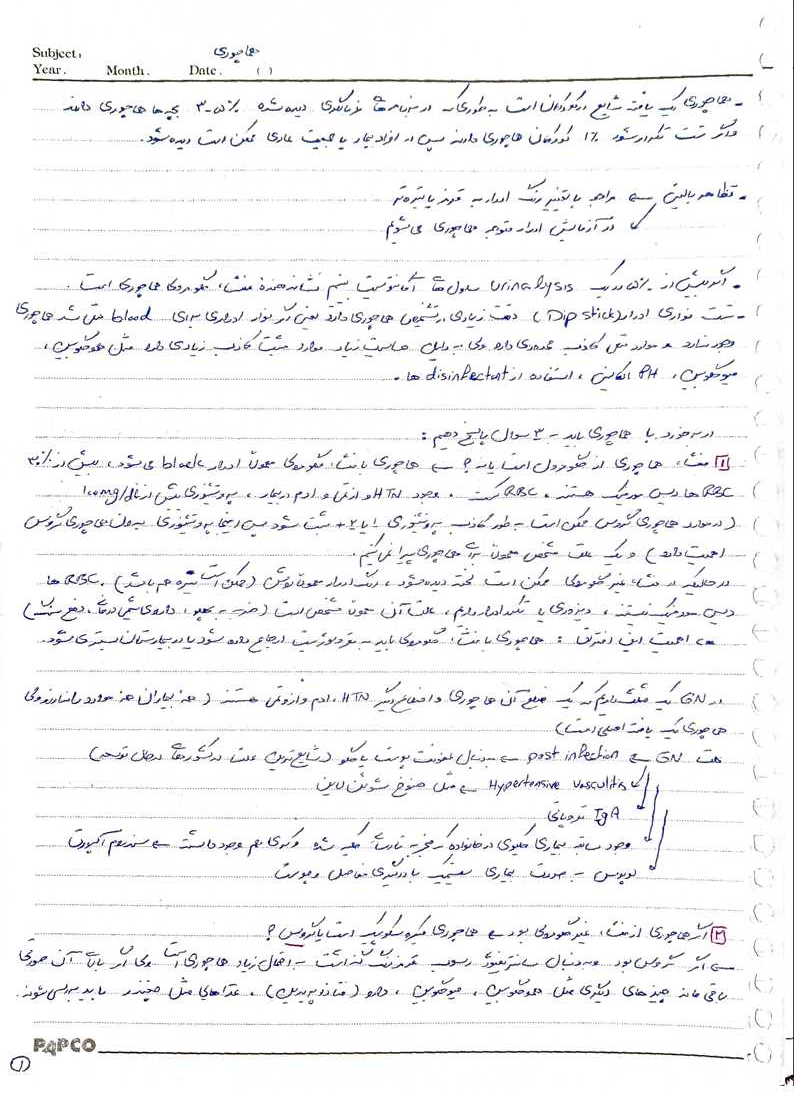 Subject: هماچوری
Year. Month. Date. ( )
- هماچوری یک یافته شایع در کودکان است به طوری که در برنامه‌ها غربالگری دیده شده ۳-۵٪ بچه‌ها هماچوری دارند
و اگر تست تکرار شود ۱٪ کودکان هماچوری دارند پس در افراد بیمار یا جمعیت عادی ممکن است دیده شود.
- تظاهر بالینی ← مراجعه با تغییر رنگ ادرار به قرمز یا تیره
در آزمایش ادرار متوجه هماچوری می‌شویم
- اگر بیش از ۵۰٪ در یک urinalysis سلول‌ها نشاندهنده منشاء گلومرولی هماچوری است.
- تست نواری ادرار (Dip stick) دقت زیادی در تشخیص هماچوری دارد یعنی اگر نوار ادراری برای blood منفی شد هماچوری
وجود ندارد و موارد منفی کاذب محدودی دارد ولی به دلیل حساسیت زیاد موارد مثبت کاذب زیادی دارد مثل هموگلوبین،
میوگلوبین، PH آلکالین، استفاده از disinfectant ها.
در برخورد با هماچوری باید به ۳ سوال پاسخ دهیم:
۱ منشاء هماچوری از گلومرول است یا نه؟ ← هماچوری با منشاء گلومرولی معمولاً ادرار bloody می‌شود، بیش از ۳۰٪
RBC ها دیس مورفیک هستند، RBC کست، وجود HTN و ازتمی و ادم در بیمار، پروتئینوری بیش از 100mg/dl
(در موارد هماچوری گروس ممکن است به طور کاذب پروتئینوری ۱+ یا ۲+ مثبت شود پس اینجا پروتئینوری بدون هماچوری گروس
اهمیت دارد) و یک علت مشخص معمولاً برای هماچوری پیدا نمی‌کنیم.
در حالیکه در منشاء غیر گلومرولی ممکن است لخته دیده شود، رنگ ادرار معمولاً روشن (ممکن است تیره هم باشد)، RBC ها
دیس مورفیک نیستند، دیزوری یا تکرر ادرار داریم، علت آن معمولاً مشخص است (ضربه به پهلو، داروی شیمی درمانی، دفع سنگ)
← اهمیت این افتراق: هماچوری با منشاء گلومرولی باید به نفرولوژیست ارجاع داده شود یا در بیمارستان بستری شود.
در GN یک مثلث داریم که یک ضلع آن هماچوری و اضلاع دیگر HTN، ادم و ازتمی هستند (همه بیماران همه موارد را ندارند ولی
هماچوری یک یافته اصلی است)
علت GN ← post infection ← به دنبال عفونت پوست یا گلو (شایع‌ترین علت در کشورهای در حال توسعه)
Hypertensive vasculitis ← مثل هنوخ شوئن لاین
IgA نفروپاتی
وجود سابقه بیماری کلیوی در خانواده که منجر به نارسایی کلیه شده و کری هم وجود داشت ← سندروم آلپورت
لوپوس ← به صورت بیماری سیستمیک با درگیری مفاصل و پوست
۲ اگر هماچوری از منشاء غیر گلومرولی بود ← هماچوری میکروسکوپیک است یا گروس؟
← اگر گروس بود و به دنبال سانتریفیوژ رسوب قرمز رنگ گذاشت ← احتمال زیاد هماچوری است ولی اگر بالای آن صورتی
باقی ماند چیزهای دیگری مثل هموگلوبین، میوگلوبین، دارو (فنازوپیریدین)، غذاهایی مثل چغندر باید بررسی شوند.
PAPCO
۱